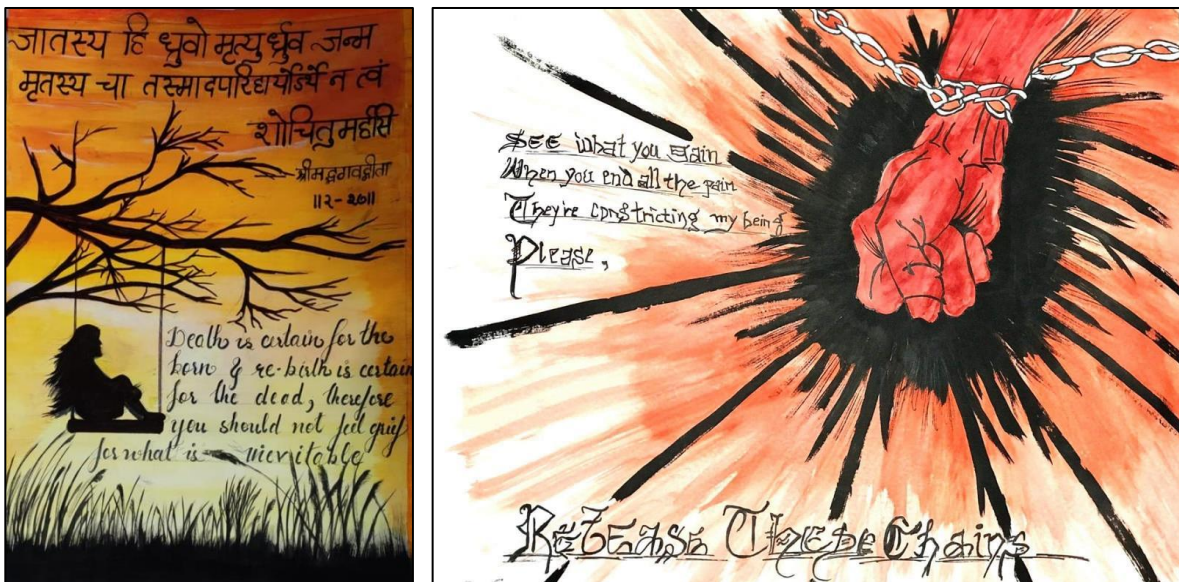 जातस्य हि ध्रुवो मृत्युर्ध्रुव जन्म
मृतस्य चा तस्मादपरिहार्येऽर्थे न त्वं
शोचितुमर्हसि
श्रीमद्भगवद्गीता
॥२-२७॥
Death is certain for the
born & re-birth is certain
for the dead, therefore
you should not feel grief
for what is inevitable
See what you gain
When you end all the pain
They're constricting my being
Please,
Release These Chains